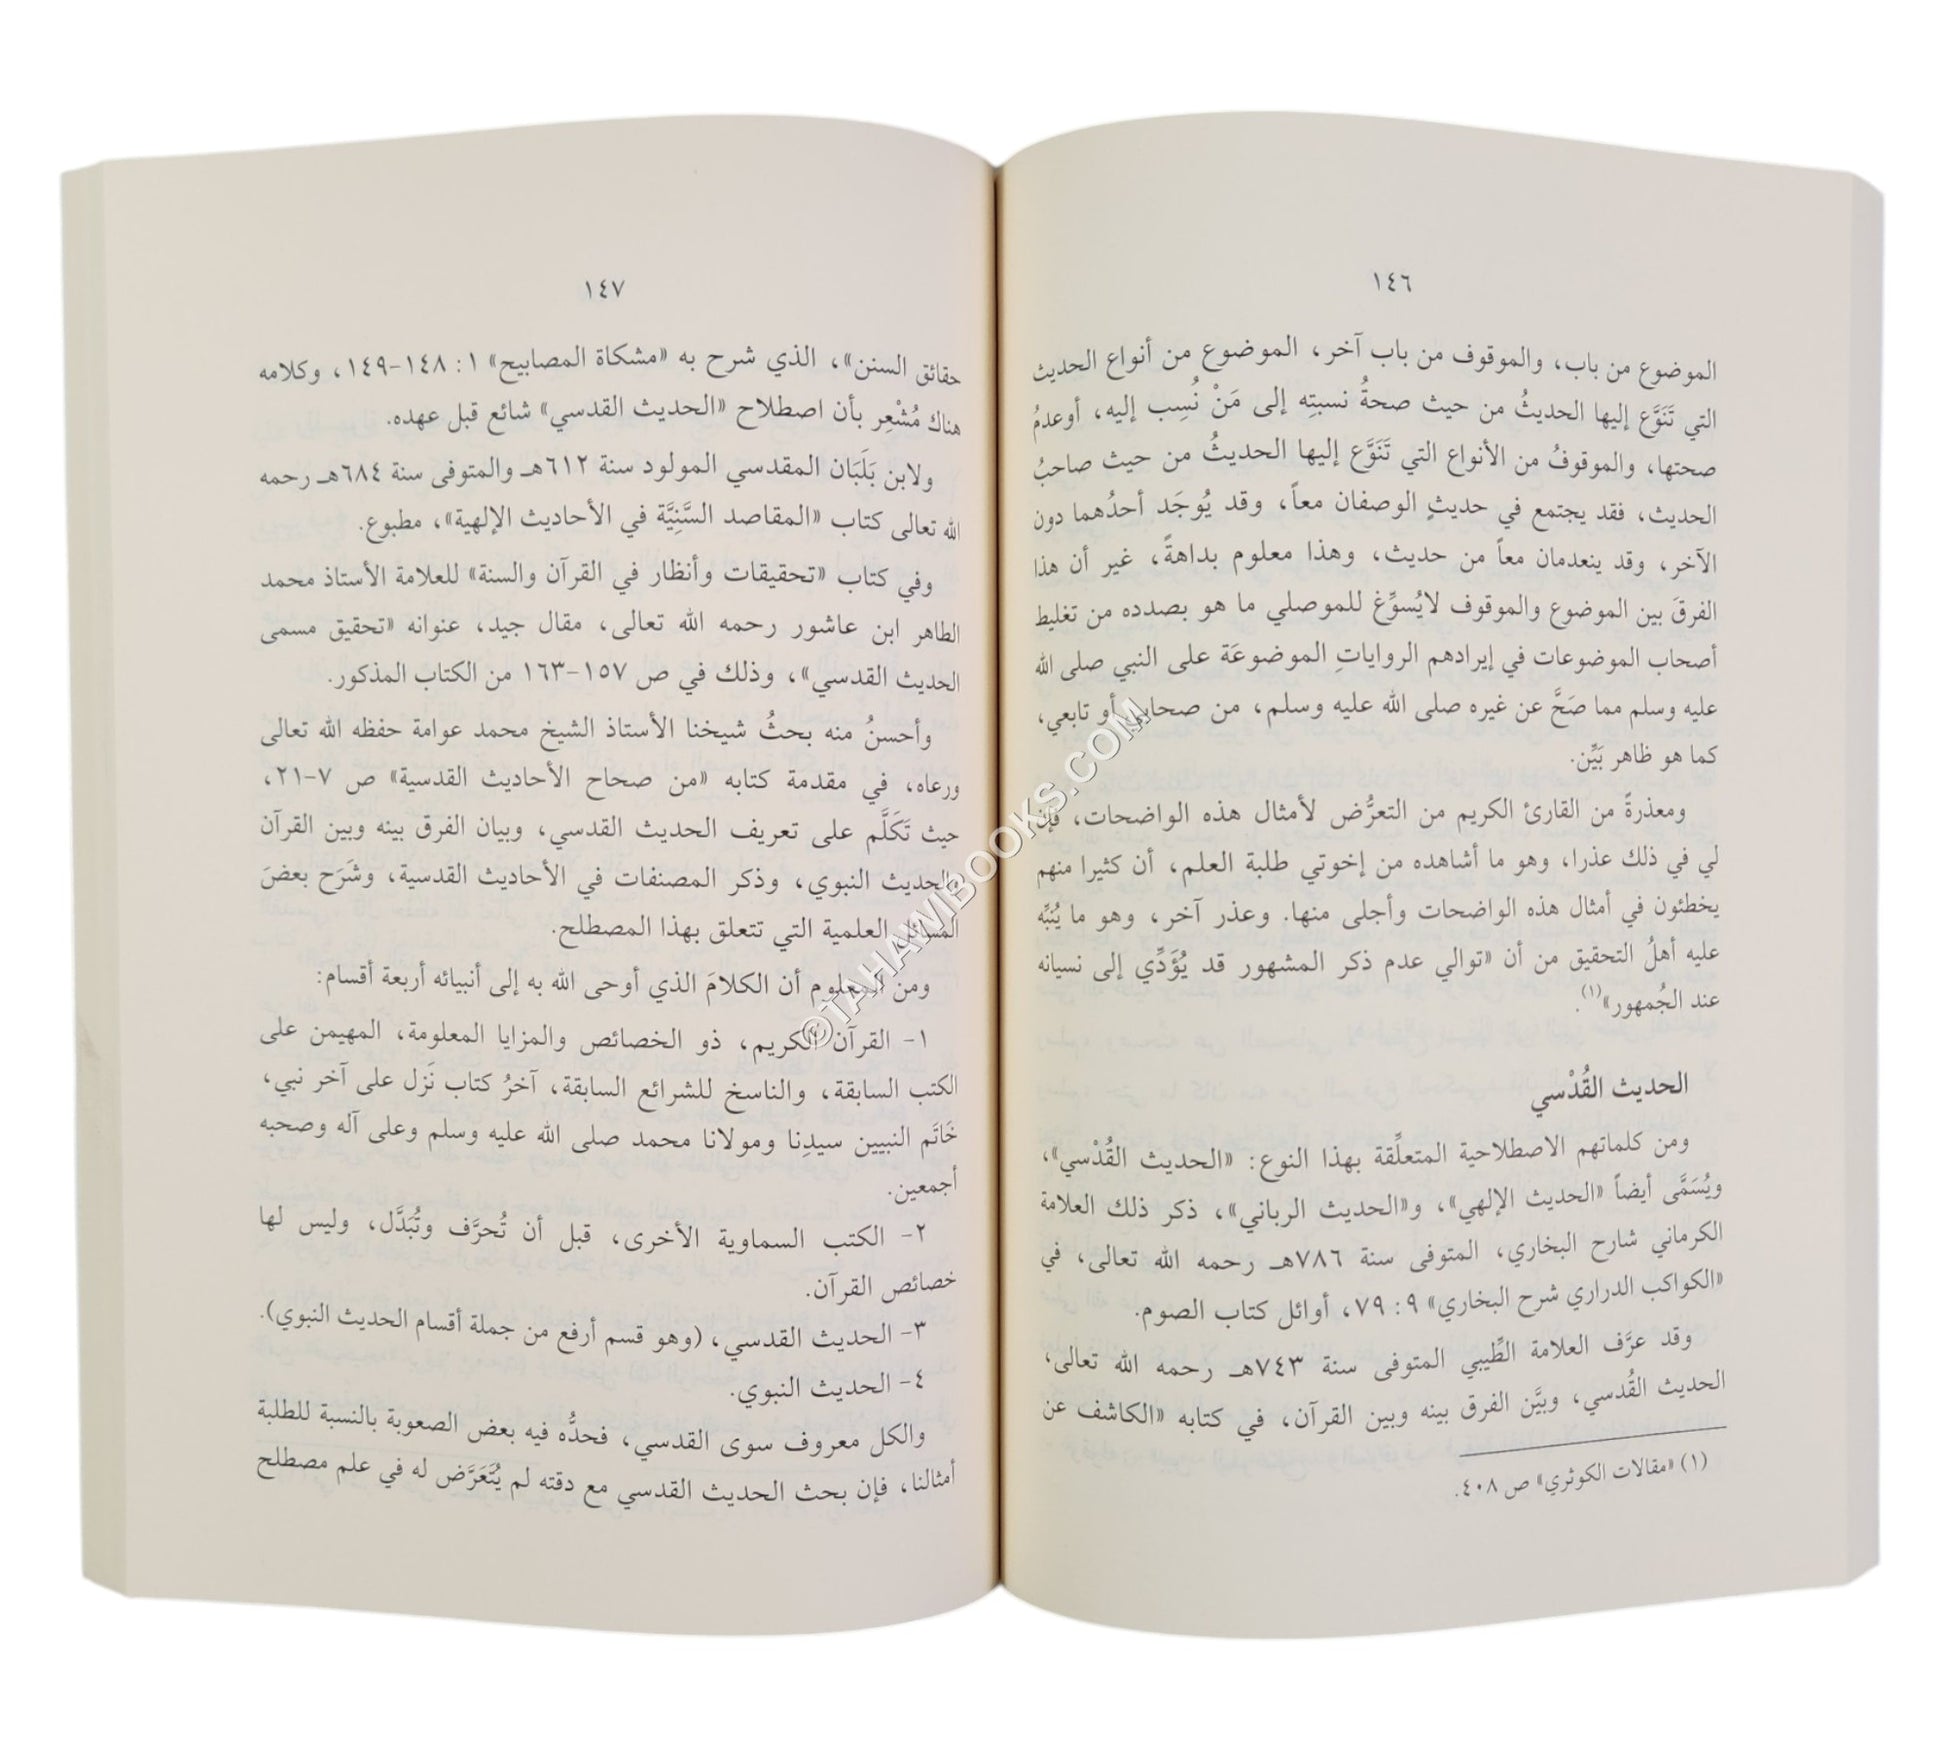 ١٤٦
الموضوع من باب، والموقوف من باب آخر، الموضوع من أنواع الحديث
التي تَنَوَّع إليها الحديثُ من حيث صحةُ نسبتِه إلى مَنْ نُسِب إليه، أوعدمُ
صحتها، والموقوفُ من الأنواع التي تَنَوَّع إليها الحديثُ من حيث صاحبُ
الحديث، فقد يجتمع في حديثٍ الوصفان معاً، وقد يُوجَد أحدُهما دون
الآخر، وقد ينعدمان معاً من حديث، وهذا معلوم بداهةً، غير أن هذا
الفرقَ بين الموضوع والموقوف لايُسوِّغ للموصلي ما هو بصدده من تغليط
أصحاب الموضوعات في إيرادهم الرواياتِ الموضوعَة على النبي صلى الله
عليه وسلم مما صَحَّ عن غيره صلى الله عليه وسلم، من صحابي أو تابعي،
كما هو ظاهر بَيِّن.
ومعذرةً من القارئ الكريم من التعرُّض لأمثال هذه الواضحات، فإن
لي في ذلك عذرا، وهو ما أشاهده من إخوتي طلبة العلم، أن كثيرا منهم
يخطئون في أمثال هذه الواضحات وأجلى منها. وعذر آخر، وهو ما يُنبِّه
عليه أهلُ التحقيق من أن «توالي عدم ذكر المشهور قد يُؤَدِّي إلى نسيانه
عند الجُمهور»(١).
الحديث القُدْسي
ومن كلماتهم الاصطلاحية المتعلِّقة بهذا النوع: «الحديث القُدْسي»،
ويُسَمَّى أيضاً «الحديث الإلهي»، و«الحديث الرباني»، ذكر ذلك العلامة
الكرماني شارح البخاري، المتوفى سنة ٧٨٦هـ رحمه الله تعالى، في
«الكواكب الدراري شرح البخاري» ٩: ٧٩، أوائل كتاب الصوم.
وقد عرَّف العلامة الطِّيبي المتوفى سنة ٧٤٣هـ رحمه الله تعالى،
الحديث القُدسي، وبيَّن الفرق بينه وبين القرآن، في كتابه «الكاشف عن
(١) «مقالات الكوثري» ص ٤٠٨.
١٤٧
حقائق السنن»، الذي شرح به «مشكاة المصابيح» ١: ١٤٨-١٤٩، وكلامه
هناك مُشْعِر بأن اصطلاح «الحديث القدسي» شائع قبل عهده.
ولابن بَلَبَان المقدسي المولود سنة ٦١٢هـ والمتوفى سنة ٦٨٤هـ رحمه
الله تعالى كتاب «المقاصد السَّنِيَّة في الأحاديث الإلهية»، مطبوع.
وفي كتاب «تحقيقات وأنظار في القرآن والسنة» للعلامة الأستاذ محمد
الطاهر ابن عاشور رحمه الله تعالى، مقال جيد، عنوانه «تحقيق مسمى
الحديث القدسي»، وذلك في ص ١٥٧-١٦٣ من الكتاب المذكور.
وأحسنُ منه بحثُ شيخنا الأستاذ الشيخ محمد عوامة حفظه الله تعالى
ورعاه، في مقدمة كتابه «من صحاح الأحاديث القدسية» ص ٧-٢١،
حيث تَكَلَّم على تعريف الحديث القدسي، وبيان الفرق بينه وبين القرآن
والحديث النبوي، وذكر المصنفات في الأحاديث القدسية، وشَرَح بعضَ
المسائل العلمية التي تتعلق بهذا المصطلح.
ومن المعلوم أن الكلامَ الذي أوحى الله به إلى أنبيائه أربعة أقسام:
١- القرآن الكريم، ذو الخصائص والمزايا المعلومة، المهيمن على
الكتب السابقة، والناسخ للشرائع السابقة، آخرُ كتاب نَزل على آخر نبي،
خَاتَم النبيين سيدِنا ومولانا محمد صلى الله عليه وسلم وعلى آله وصحبه
أجمعين.
٢- الكتب السماوية الأخرى، قبل أن تُحرَّف وتُبَدَّل، وليس لها
خصائص القرآن.
٣- الحديث القدسي، (وهو قسم أرفع من جملة أقسام الحديث النبوي).
٤- الحديث النبوي.
والكل معروف سوى القدسي، فحدُّه فيه بعض الصعوبة بالنسبة للطلبة
أمثالنا، فإن بحث الحديث القدسي مع دقته لم يُتَعَرَّض له في علم مصطلح
©TAHAWIBOOKS.COM